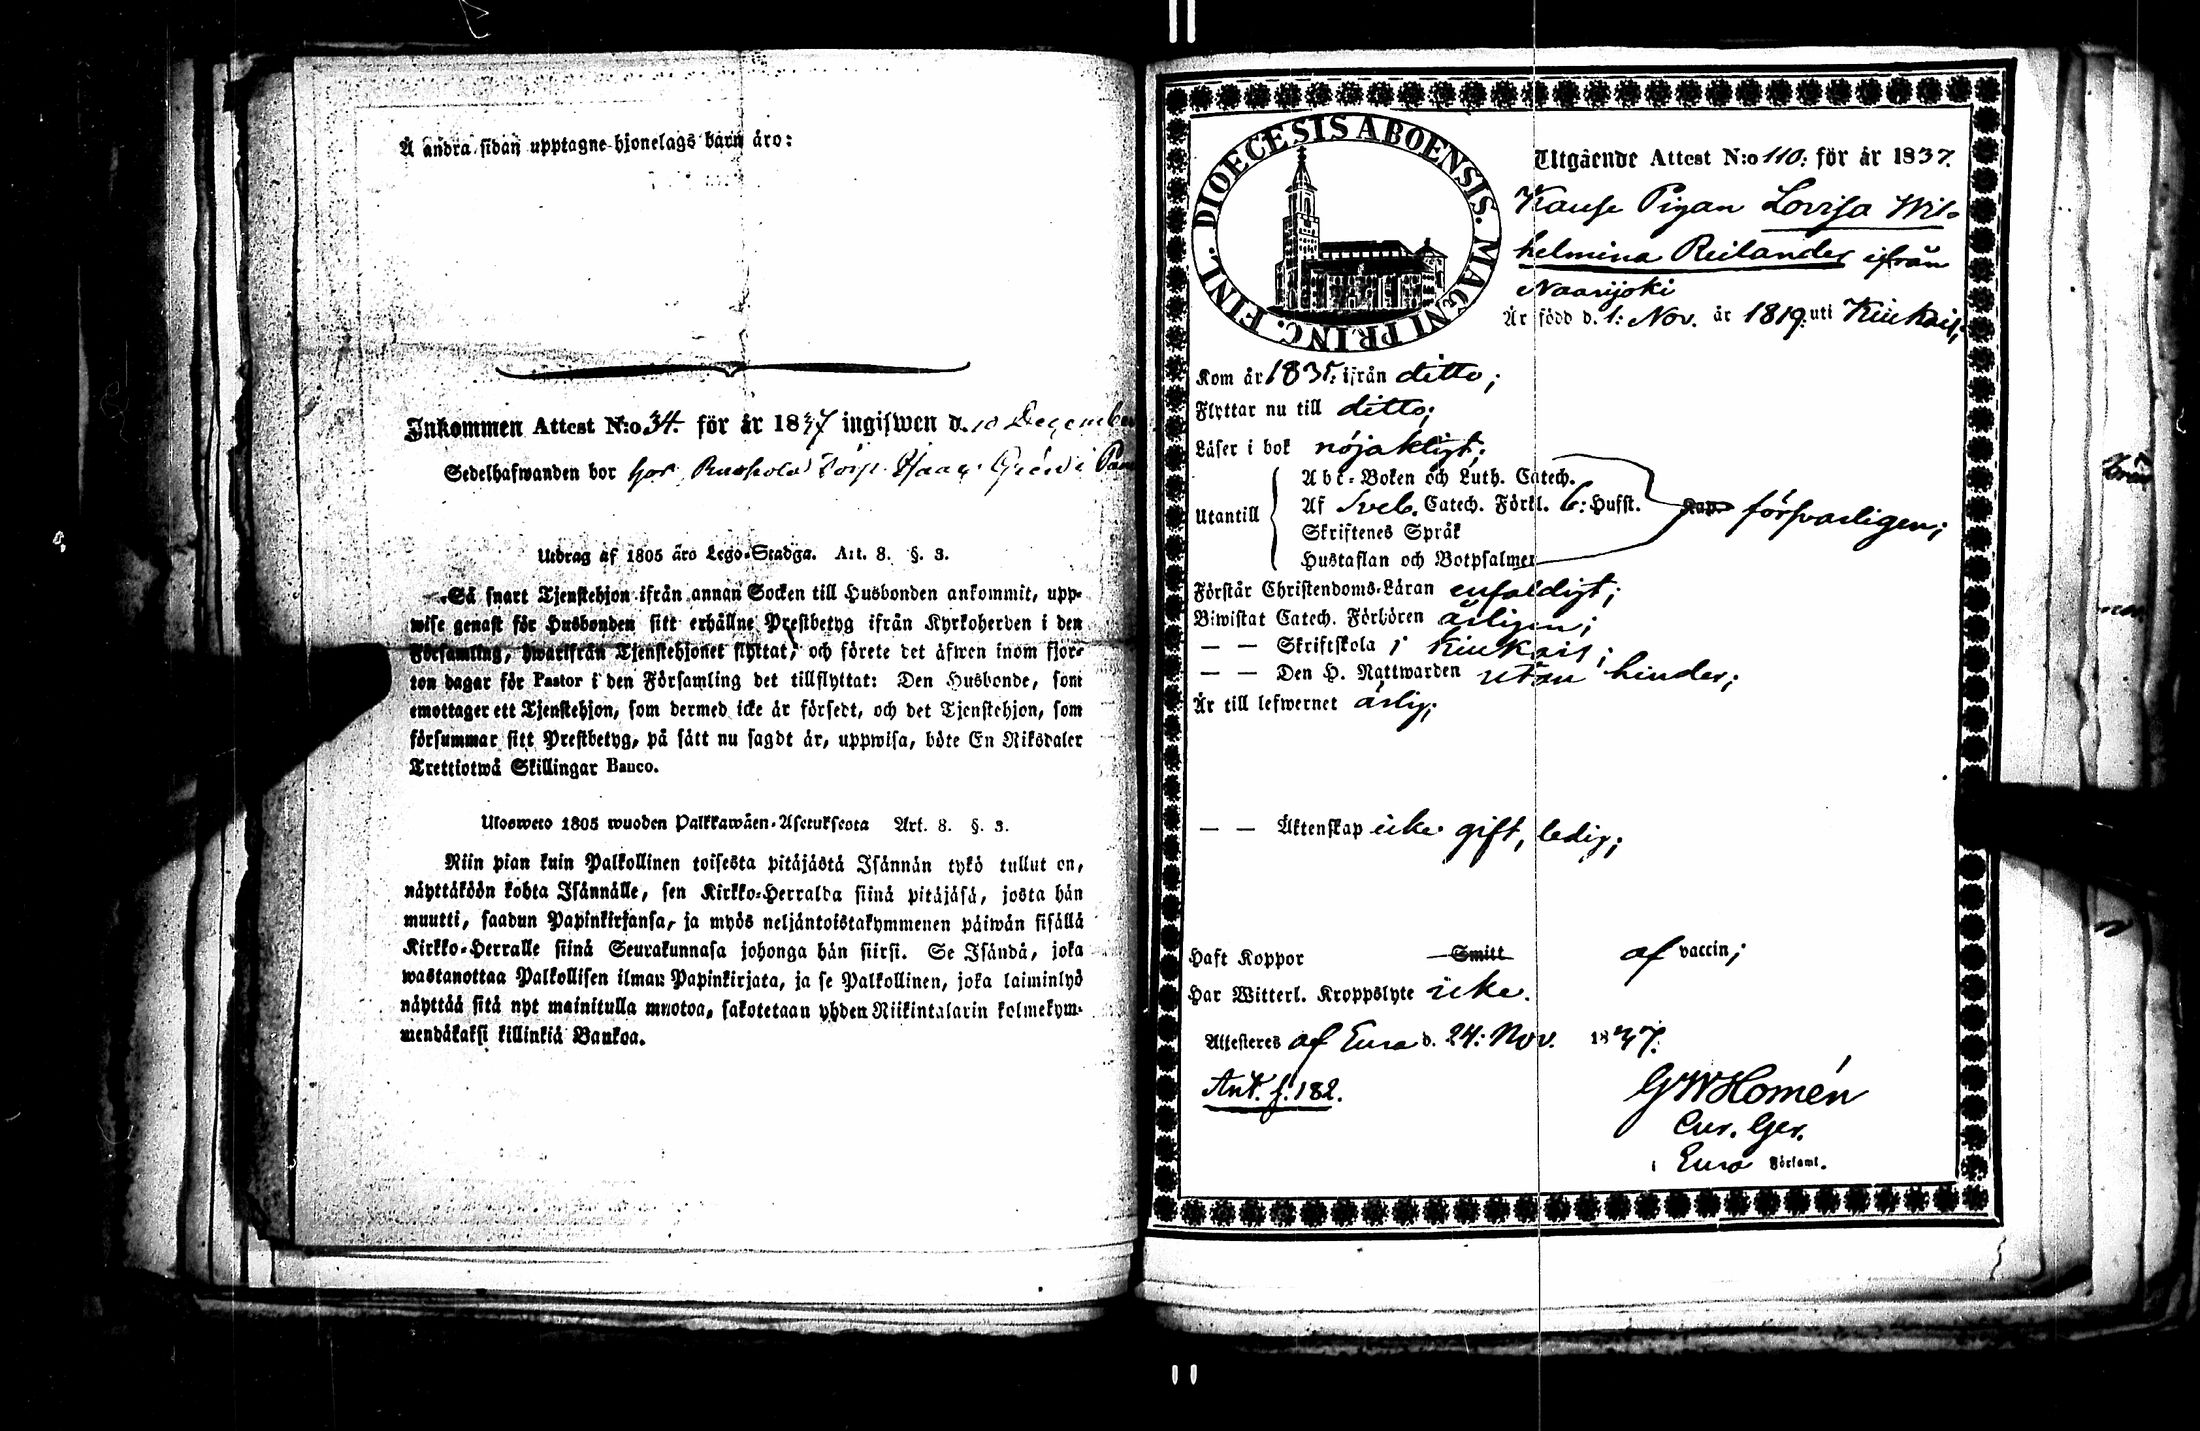 Å andra sidan upptagne hjonelags barn äro:
Inkommen Attest N:o 34. för år 1837 ingifwen d. 10 December
Sedelhafwanden bor hos
Utdrag af 1805 års Lego-Stadga. Art. 8. §. 3.
Så snart Tjenstehjon ifrån annan Socken till Husbonden ankommit, upp-
wise genast för Husbonden sitt erhållne Prestbetyg ifrån Kyrkoherden i den
Församling, hwarifrån Tjenstehjonet flyttat, och förete det äfwen inom fjor-
ton dagar för Pastor i den Församling det tillflyttat: Den Husbonde, som
emottager ett Tjenstehjon, som dermed icke är försedt, och det Tjenstehjon, som
försummar sitt Prestbetyg, på sätt nu sagdt är, uppwisa, böte En Riksdaler
Trettiotwå Skillingar Banco.
Ulosweto 1805 wuoden Palkkawäen-Asetuksesta Art. 8. §. 3.
Niin pian kuin Palkollinen toisesta pitäjästä Isännän tykö tullut on,
näyttäköön kohta Isännälle, sen Kirkko-Herralda siinä pitäjäsä, josta hän
muutti, saadun Papinkirjansa, ja myös neljäntoistakymmenen päiwän sisällä
Kirkko-Herralle siinä Seurakunnasa johonga hän siirsi. Se Isändä, joka
wastanottaa Palkollisen ilman Papinkirjata, ja se Palkollinen, joka laiminlyö
näyttää sitä nyt mainitulla muotoa, sakotetaan yhden Riikintalarin kolmekym-
mendäkaksi killinkiä Bankoa.
DIOECESIS ABOENSIS. MAGNI PRINC. FINL.
Utgående Attest N:o 110: för år 1837.
Kause Pigan Lovisa Wil-
helmina Reilander ifrån
Naarijoki
Är född d. 1: Nov. år 1819. uti Kiukais;
Kom år 1835: ifrån ditto;
Flyttar nu till ditto;
Läser i bok nöjaktigt;
Utantill
Abc-Boken och Luth. Catech.
Af Sveb. Catech. Förkl. 6: Hufst. Kap. försvarligen;
Skriftenes Språk
Hustaflan och Botpsalmer
Förstår Christendoms-Läran enfaldigt;
Biwistat Catech. Förhören årligen;
— — Skriftskola i Kiukais;
— — Den H. Nattwarden utan hinder;
Är till lefwernet ärlig;
— — Äktenskap icke gift, ledig;
Haft Koppor Smitt af vaccin;
Har Witterl. Kroppslyte icke.
Attesteres af Eura d. 24: Nov. 1837.
Ant. f. 182.
GWHomén
Cur. Ger.
i Eura Församl.